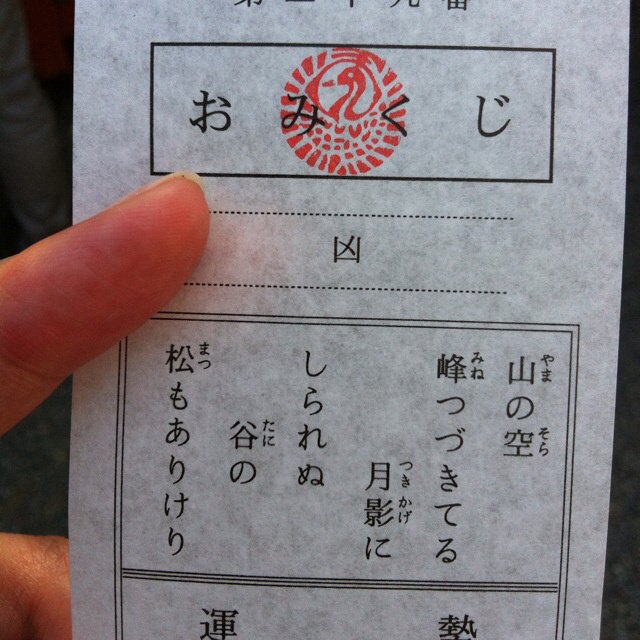 おみくじ
凶
山の空
峰つづきてる
月影に
しられぬ
谷の
松もありけり
運勢